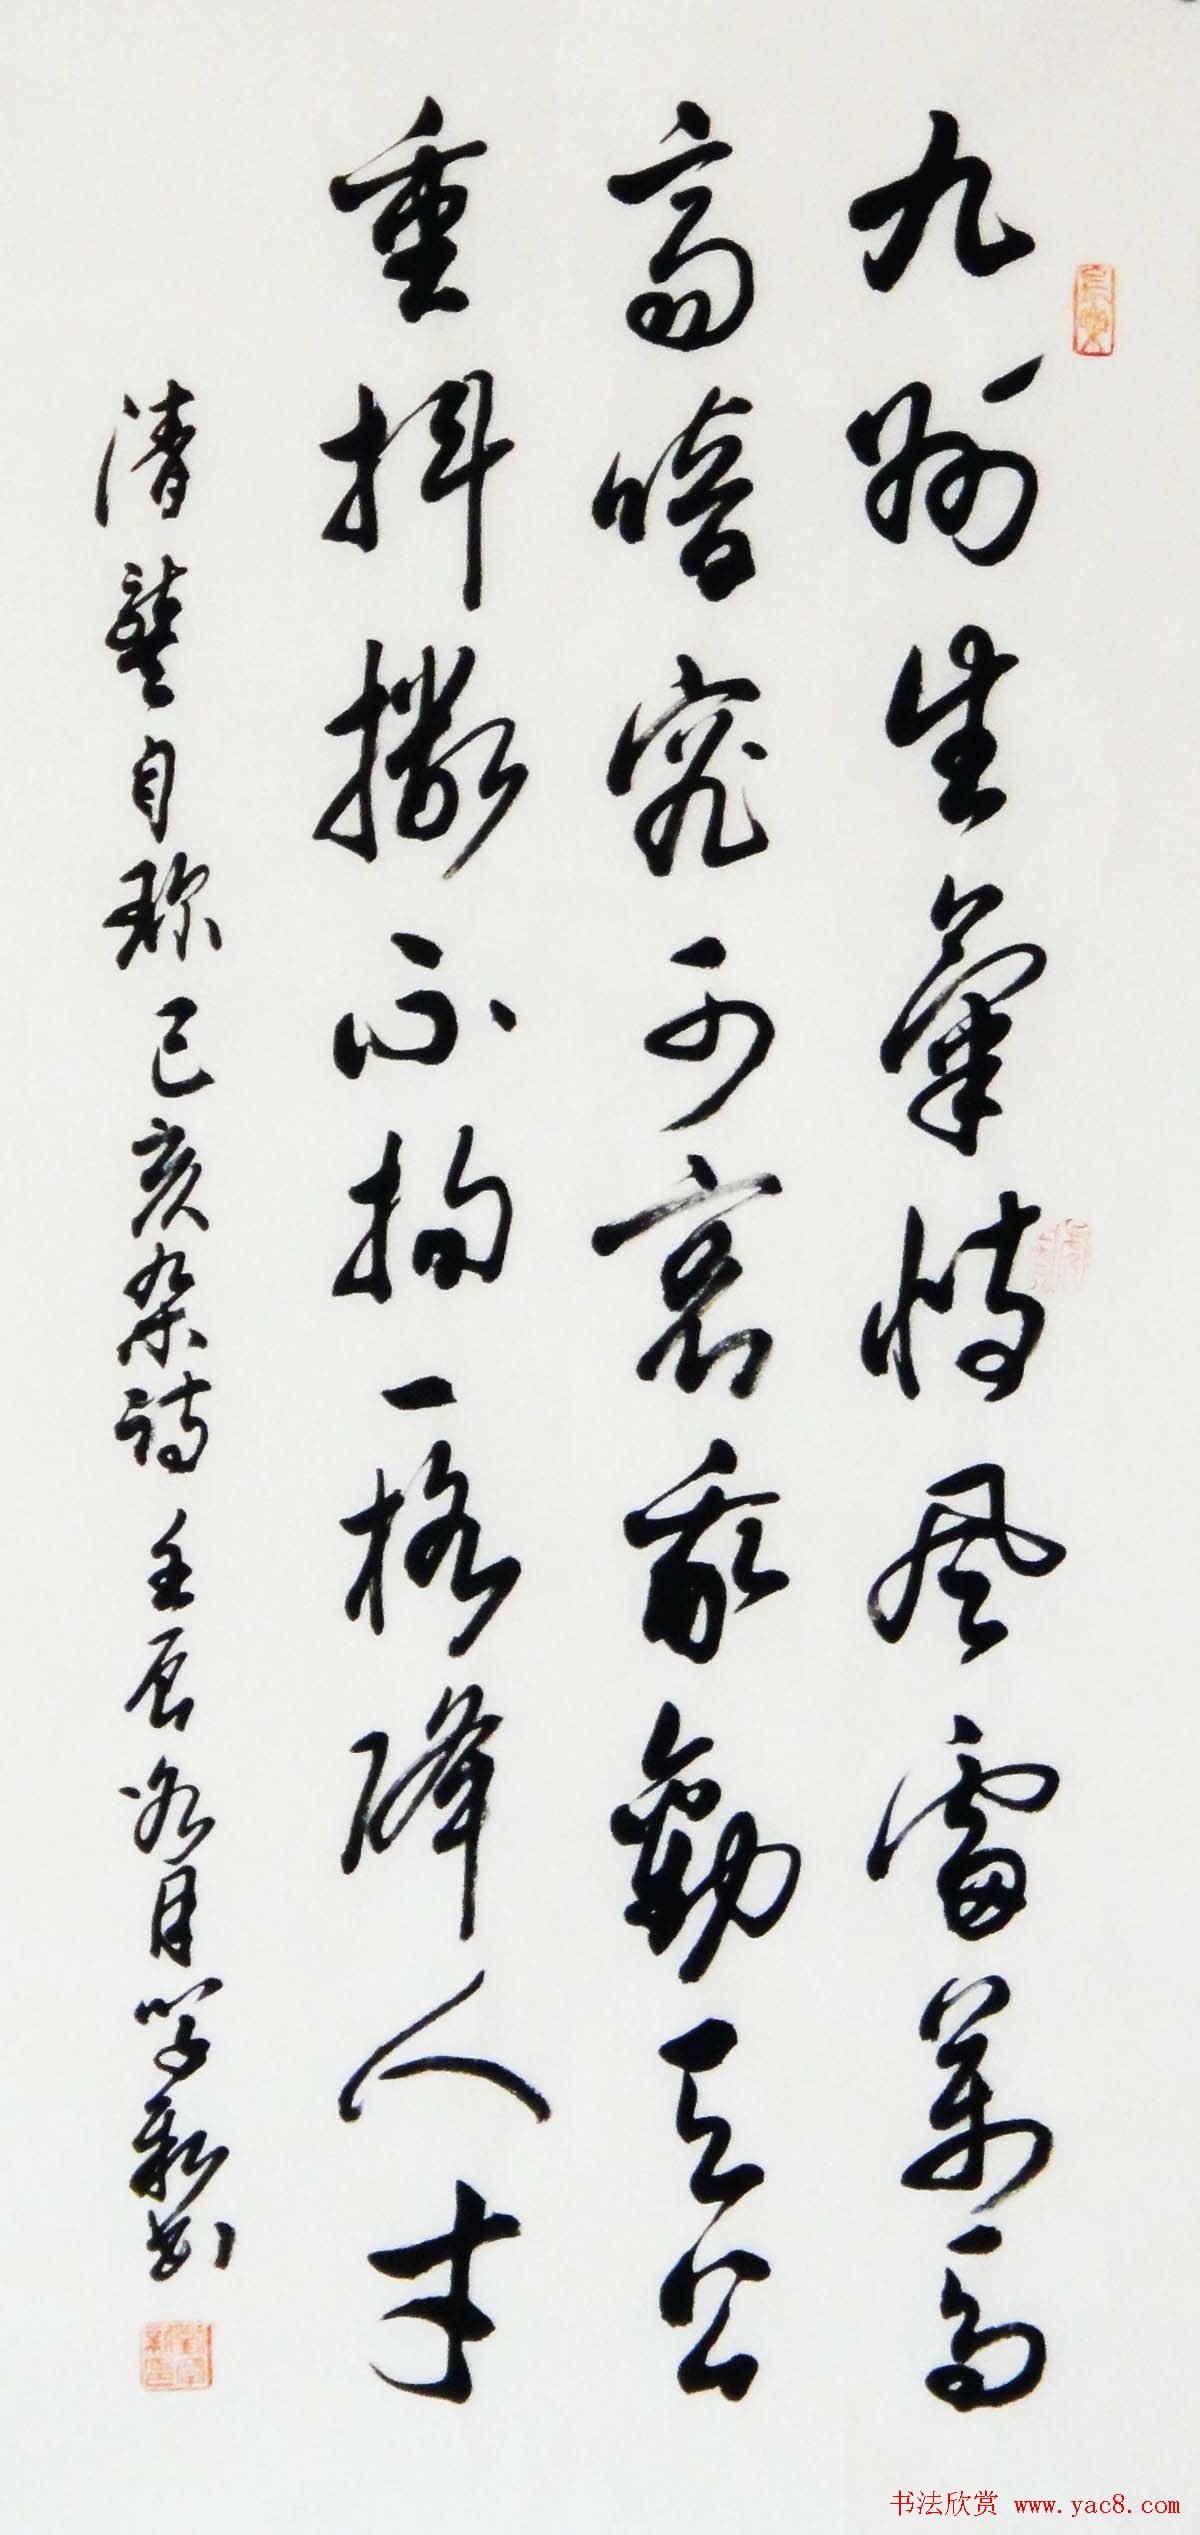 九州生氣恃风雷萬馬
齊喑究可哀我勸天公
重抖擻不拘一格降人才
清龔自珍己亥杂诗壬辰月学新书
书法欣赏 www.yac8.com